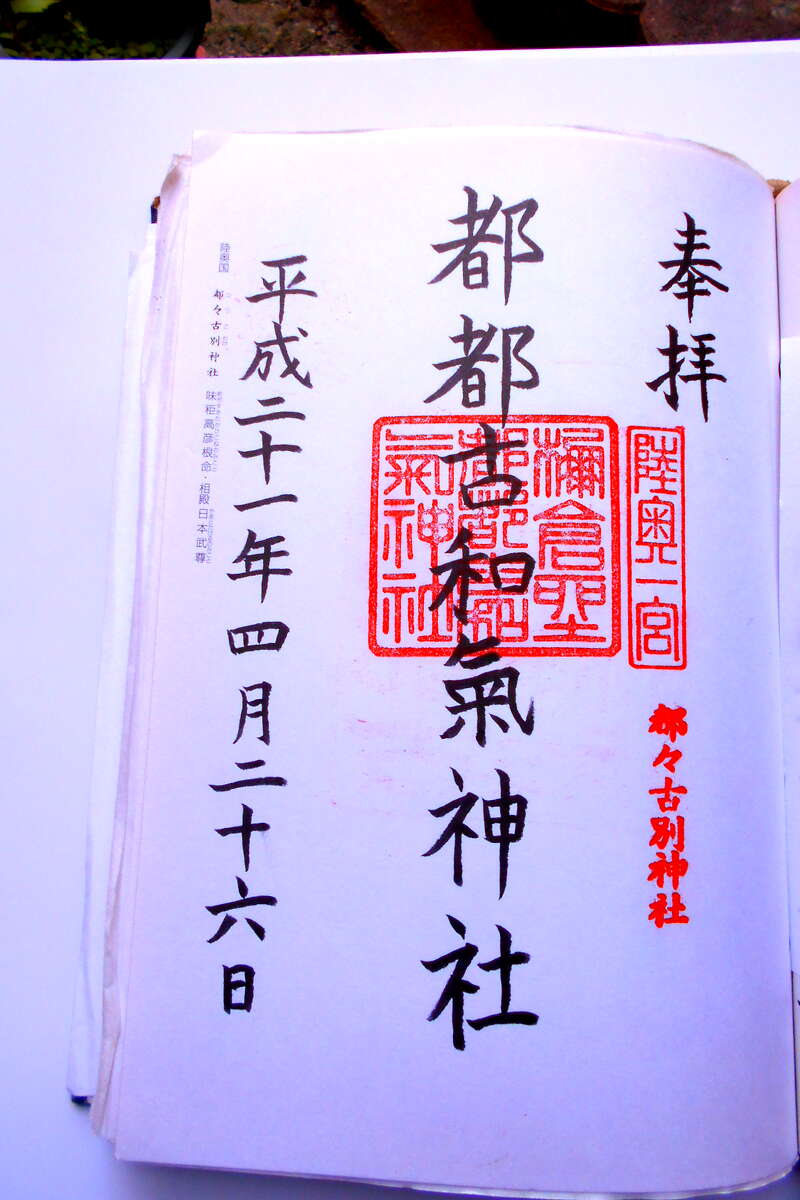 奉拝
陸奥一宮
都々古別神社
都都古和氣神社
平成二十一年四月二十六日
陸奥国 都々古別神社 味秬高彦根命・相殿日本武尊